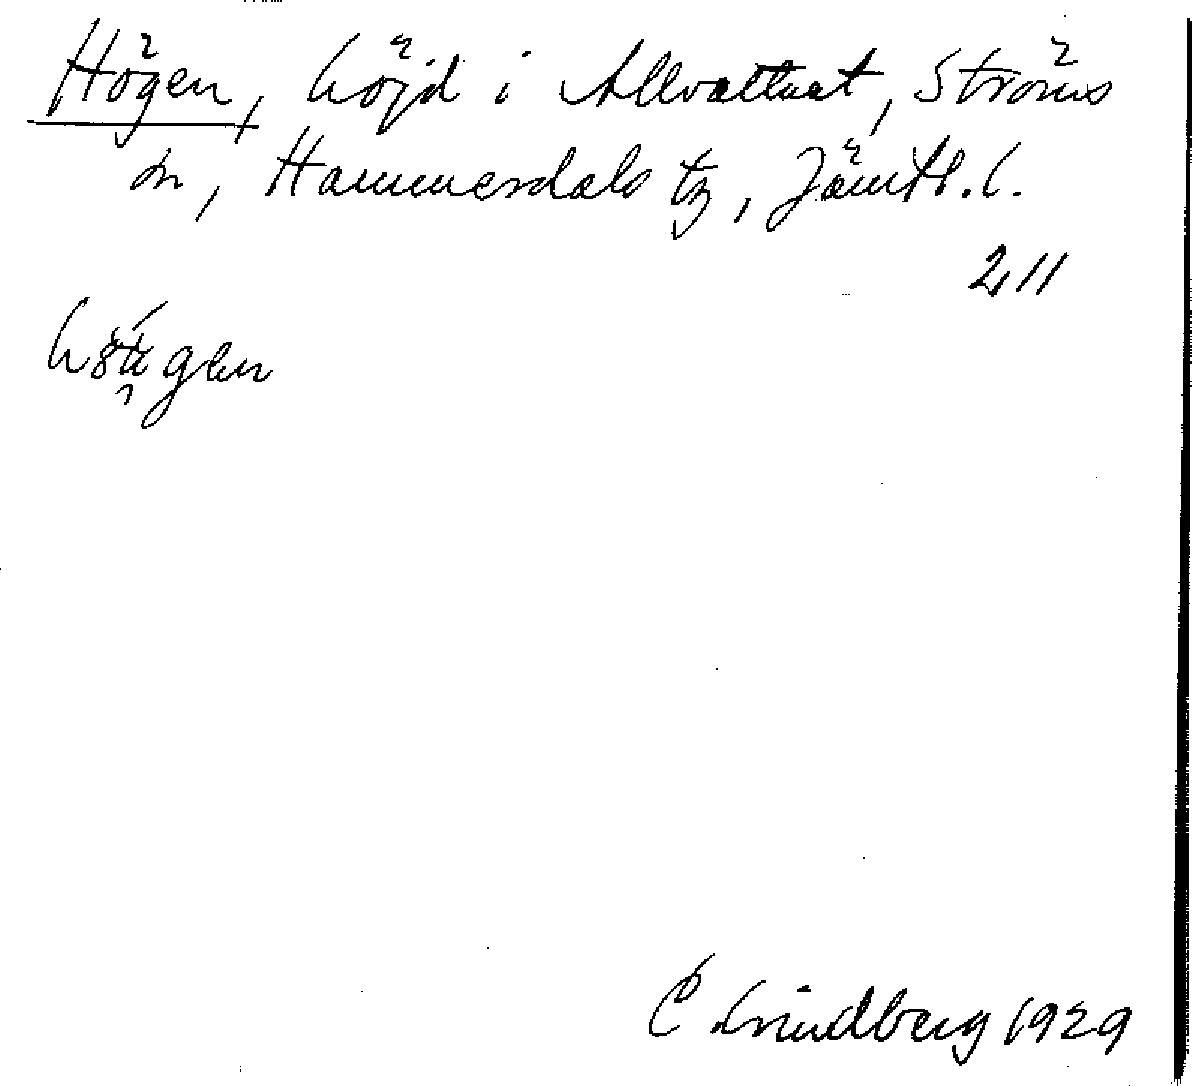 Högen, höjd i Allvattnet, Ströms
sn, Hammerdals tg, Jämtl. l.
211
C Lindberg 1929